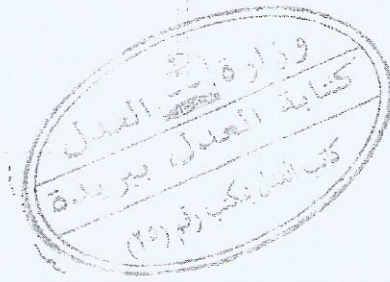 وزارة العدل
كتابة العدل ببريدة
كاتب العدل بمكتب رقم (٢٥)